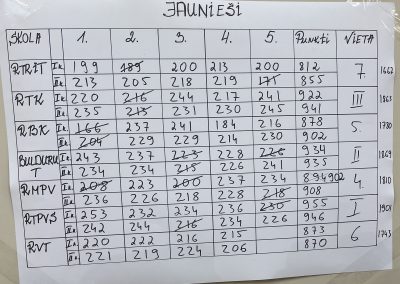 JAUNIEŠI
SKOLA 1. 2. 3. 4. 5. Punkti VIETA
RTRIT I k. 199 189 200 213 200 812 7. 1667
II k. 213 205 218 219 175 855
RTK I k. 220 216 244 217 241 922 III 1863
II k. 235 213 231 230 245 941
RBK I k. 166 237 241 184 216 878 5. 1780
II k. 204 229 229 214 230 902
BULDURU T I k. 243 237 223 228 226 934 II 1869
II k. 234 234 215 226 241 935
RMPV I k. 208 223 200 237 234 894902 4. 1810
II k. 236 226 218 228 218 908
RTPVS I k. 253 232 234 236 230 955 I 1901
II k. 242 244 216 234 226 946
RVT I k. 220 222 216 215 873 6 1743
II k. 221 219 224 206 870